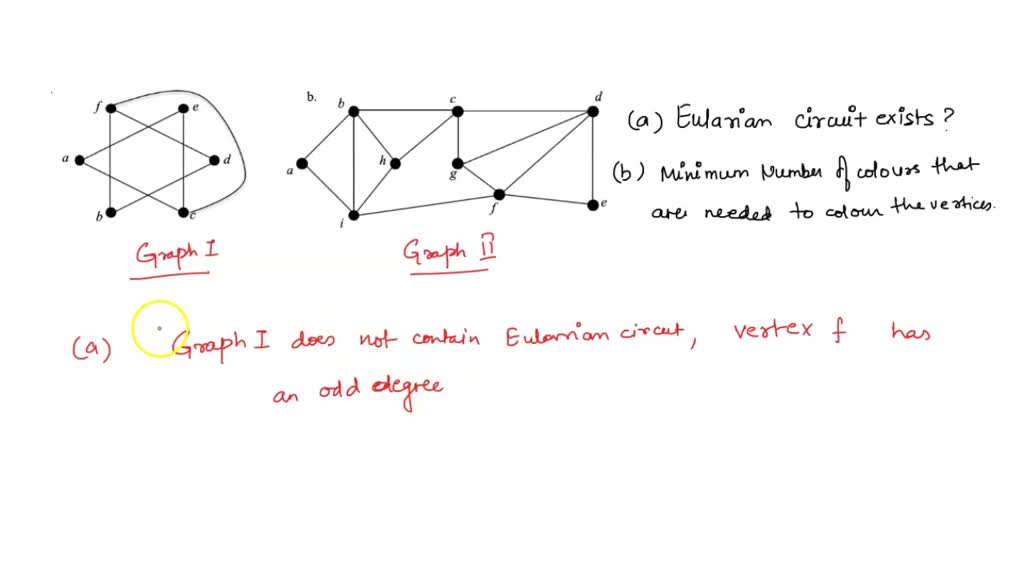 f e
a d
b c
Graph I
b.
b c d
a h g
i f e
Graph II
(a) Eularian circuit exists?
(b) Minimum Number of colours that
are needed to colour the vertices.
(a) Graph I does not contain Eularian circut, vertex f has
an odd degree